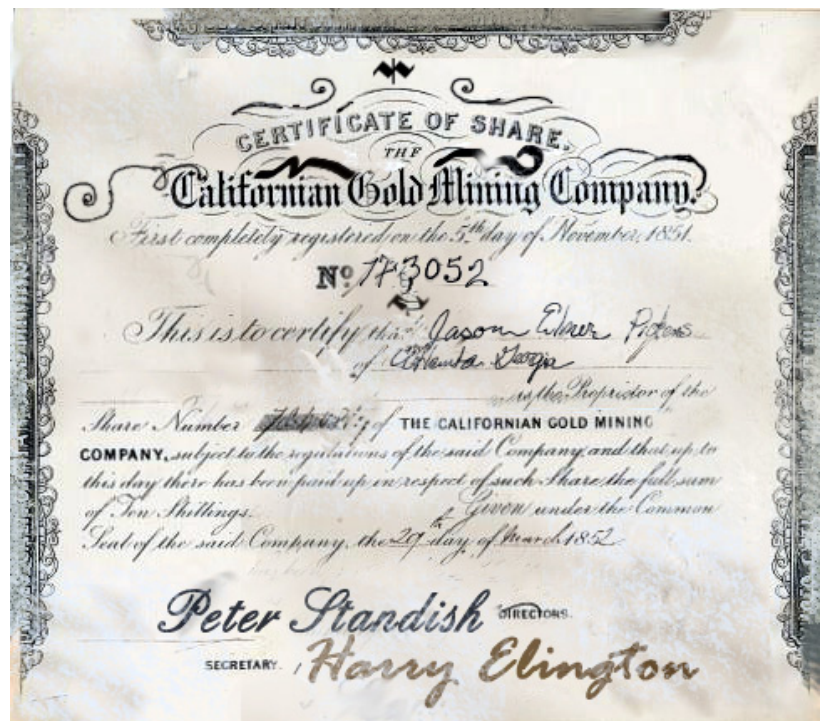 CERTIFICATE OF SHARE.
THE
Californian Gold Mining Company.
First completely registered on the 5th day of November, 1851.
No 173052
This is to certify that Jason Elmer
of Atlanta Georgia
is the Proprietor of the
Share Number of THE CALIFORNIAN GOLD MINING
COMPANY, subject to the regulations of the said Company and that up to
this day there has been paid up in respect of such Share the full sum
of Ten Shillings. Given under the Common
Seal of the said Company, the 29th day of March 1852
Peter Standish DIRECTORS.
SECRETARY. Harry Elington